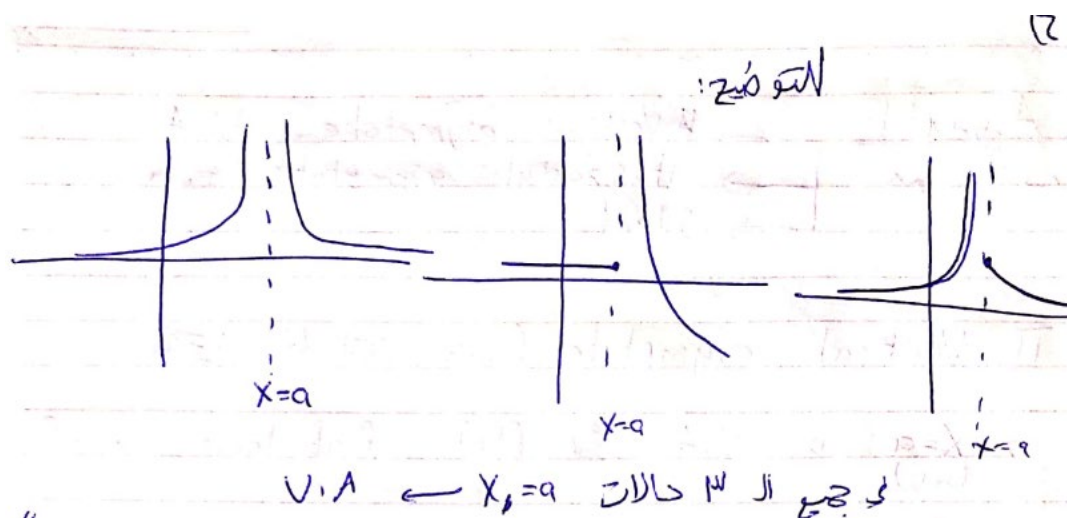 للتوضيح:
x=a
x=a
x=a
في جميع الـ ٣ حالات x=a ← V.A